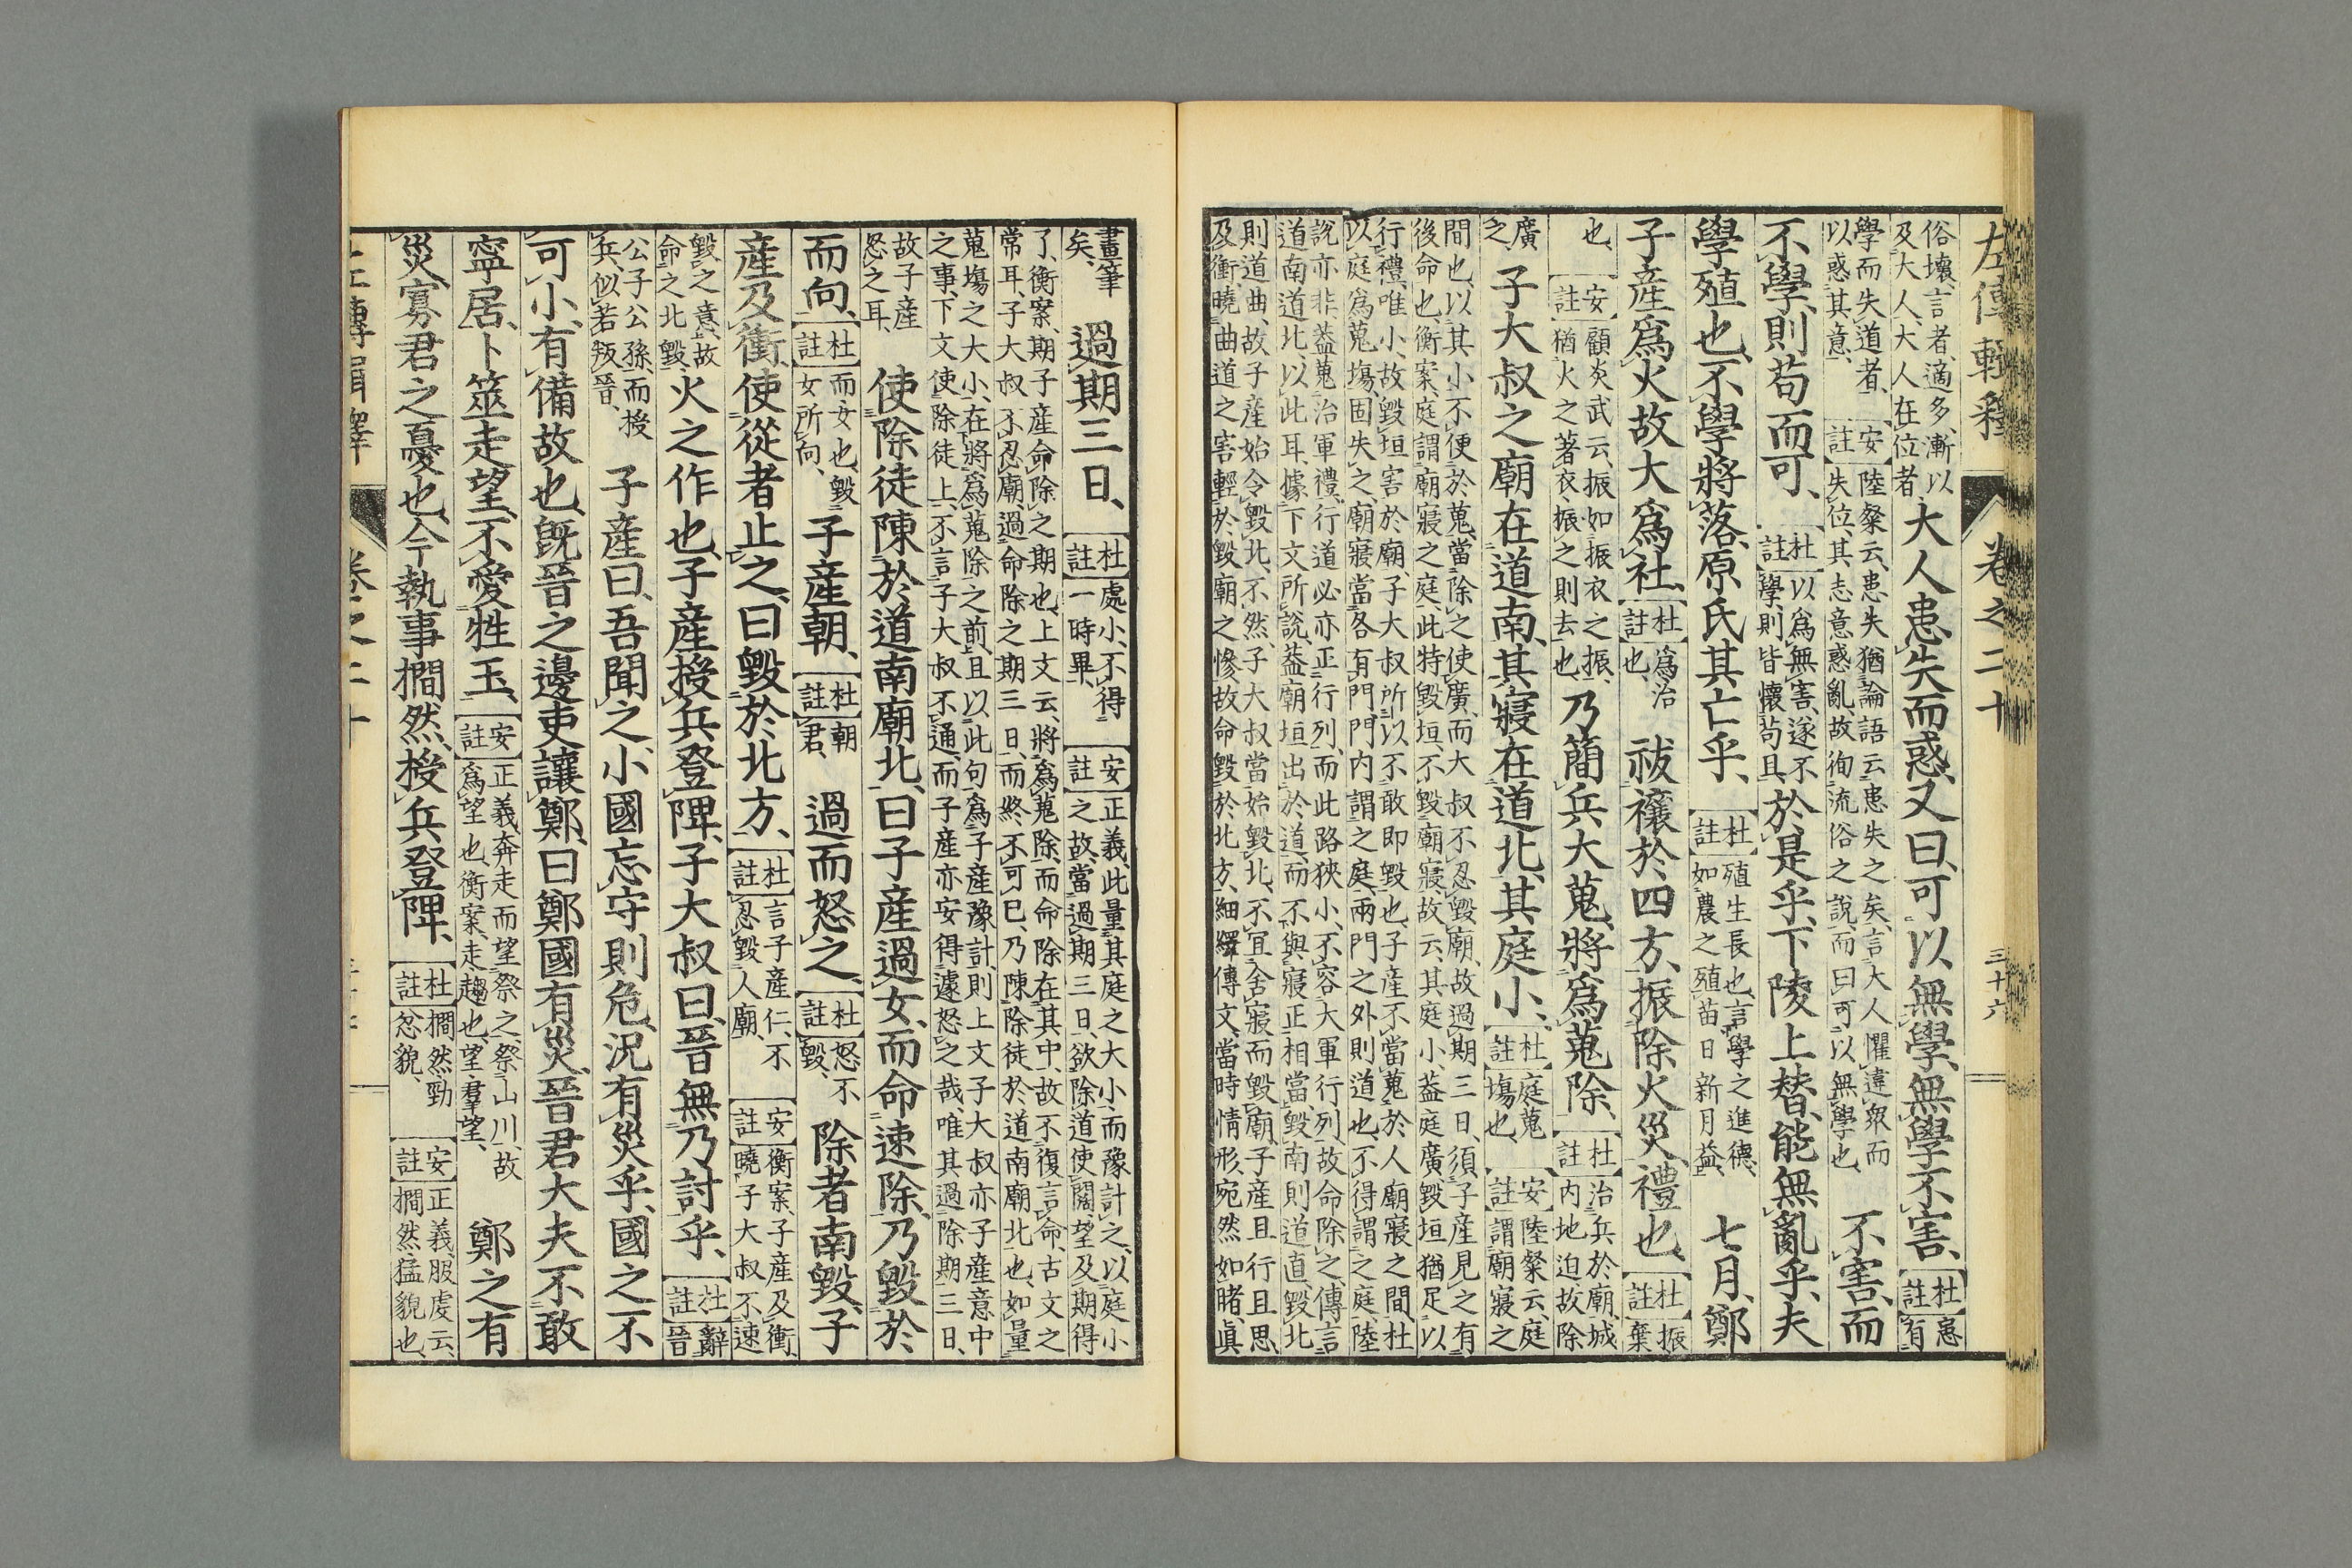 左傳輯釋 卷之二十 三十六
俗壞、言者適多、漸以
及大人、大人在位者、
大人患失而惑、又曰、可以無學、無學不害、
杜註 患有
學而失道者、
以惑其意、
安註 陸粲云、患失猶論語云患失之矣、言大人懼違衆而
失位、其志意惑亂、故徇流俗之說、而曰可以無學也、
不害、而
不學、則苟而可、
杜註 以爲無害、遂不
學、則皆懷苟且、
於是乎、下陵上替、能無亂乎、夫
學殖也、不學將落、原氏其亡乎、
杜註 殖生長也、言學之進德、
如農之殖苗日新月益、
七月、鄭
子產爲火故大爲社、
杜註 爲治
也、
祓禳於四方、振除火災、禮也、
杜註 振
棄
也、
安註 顧炎武云、振如振衣之振、
猶火之著衣、振之則去也、
乃簡兵大蒐、將爲蒐除、
杜註 治兵於廟、城
內地迫、故除
廣
之、
子大叔之廟在道南、其寢在道北、其庭小、
杜註 庭蒐
塲也、
安註 陸粲云、庭
謂廟寢之
間也、以其小不便於蒐、當除之使廣、而大叔不忍毀廟、故過期三日、須子產見之有
後命也、衡案、庭謂廟寢之庭、此特毀垣、不毀廟寢、故云其庭小、蓋庭廣、毀垣猶足以
行禮、唯小、故毀垣害於廟、子大叔所以不敢即毀也、子產不當蒐於人廟寢之間、杜
以庭爲蒐塲、固失之、廟寢當各有門、門內謂之庭、兩門之外則道也、不得謂之庭、陸
說亦非、蓋蒐治軍禮、行道必亦正行列、而此路狹小、不容大軍行列、故命除之、傳言
道南道北、以此耳、據下文所說、蓋廟垣出於道、而不與寢正相當、毀南則道直、毀北
則道曲、故子產始令毀北、不然、子大叔當始毀北、不宜舍寢而毀廟、子產且行且思、
及衝、曉曲道之害輕於毀廟之慘、故命毀於北方、細繹傳文、當時情形、宛然如睹、眞
畫筆
矣、
過期三日、
杜註 處小、不得
一時畢、
安註 正義、此量其庭之大小、而豫計之、以庭小
之故、當過期三日、欲除道使闊、望及期得
了、衡案、期子產命除之期也、上文云、將爲蒐除、而命除在其中、故不復言命、古文之
常耳、子大叔不忍廟、過命除之期三日、而終不可已、乃陳除徒於道南廟北也、如量
蒐塲之大小、在將爲蒐除之前、且以此句爲子產豫計、則上文子大叔亦子產意中
之事、下文使除徒上、不言子大叔不通、而子產亦安得遽怒之哉、唯其過除期三日、
故子產
怒之耳、
使除徒陳於道南廟北、曰子產過女、而命速除、乃毀於
而向、
杜註 而女也、毀
女所向、
子產朝、
杜註 朝
君、
過而怒之、
杜註 怒不
毀、
除者南毀、子
產及衝、使從者止之、曰毀於北方、
杜註 言子產仁、不
忍毀人廟、
安註 衡案、子產及衝、
曉子大叔不速
毀之意、故
命之北毀、
火之作也、子產授兵登陴、子大叔曰、晉無乃討乎、
杜註 辭
晉
公子公孫、而授
兵、似若叛晉、
子產曰、吾聞之、小國忘守則危、況有災乎、國之不
可小、有備故也、既晉之邊吏讓鄭、曰鄭國有災、晉君大夫不敢
寧居、卜筮走望、不愛牲玉、
安註 正義、奔走而望祭之、祭山川、故
爲望也、衡案、走趨也、望羣望、
鄭之有
災寡君之憂也、今執事撊然、授兵登陴、
杜註 撊然勁
忿貌、
安註 正義、服虔云、
撊然、猛貌也、
左傳輯釋 卷之二十